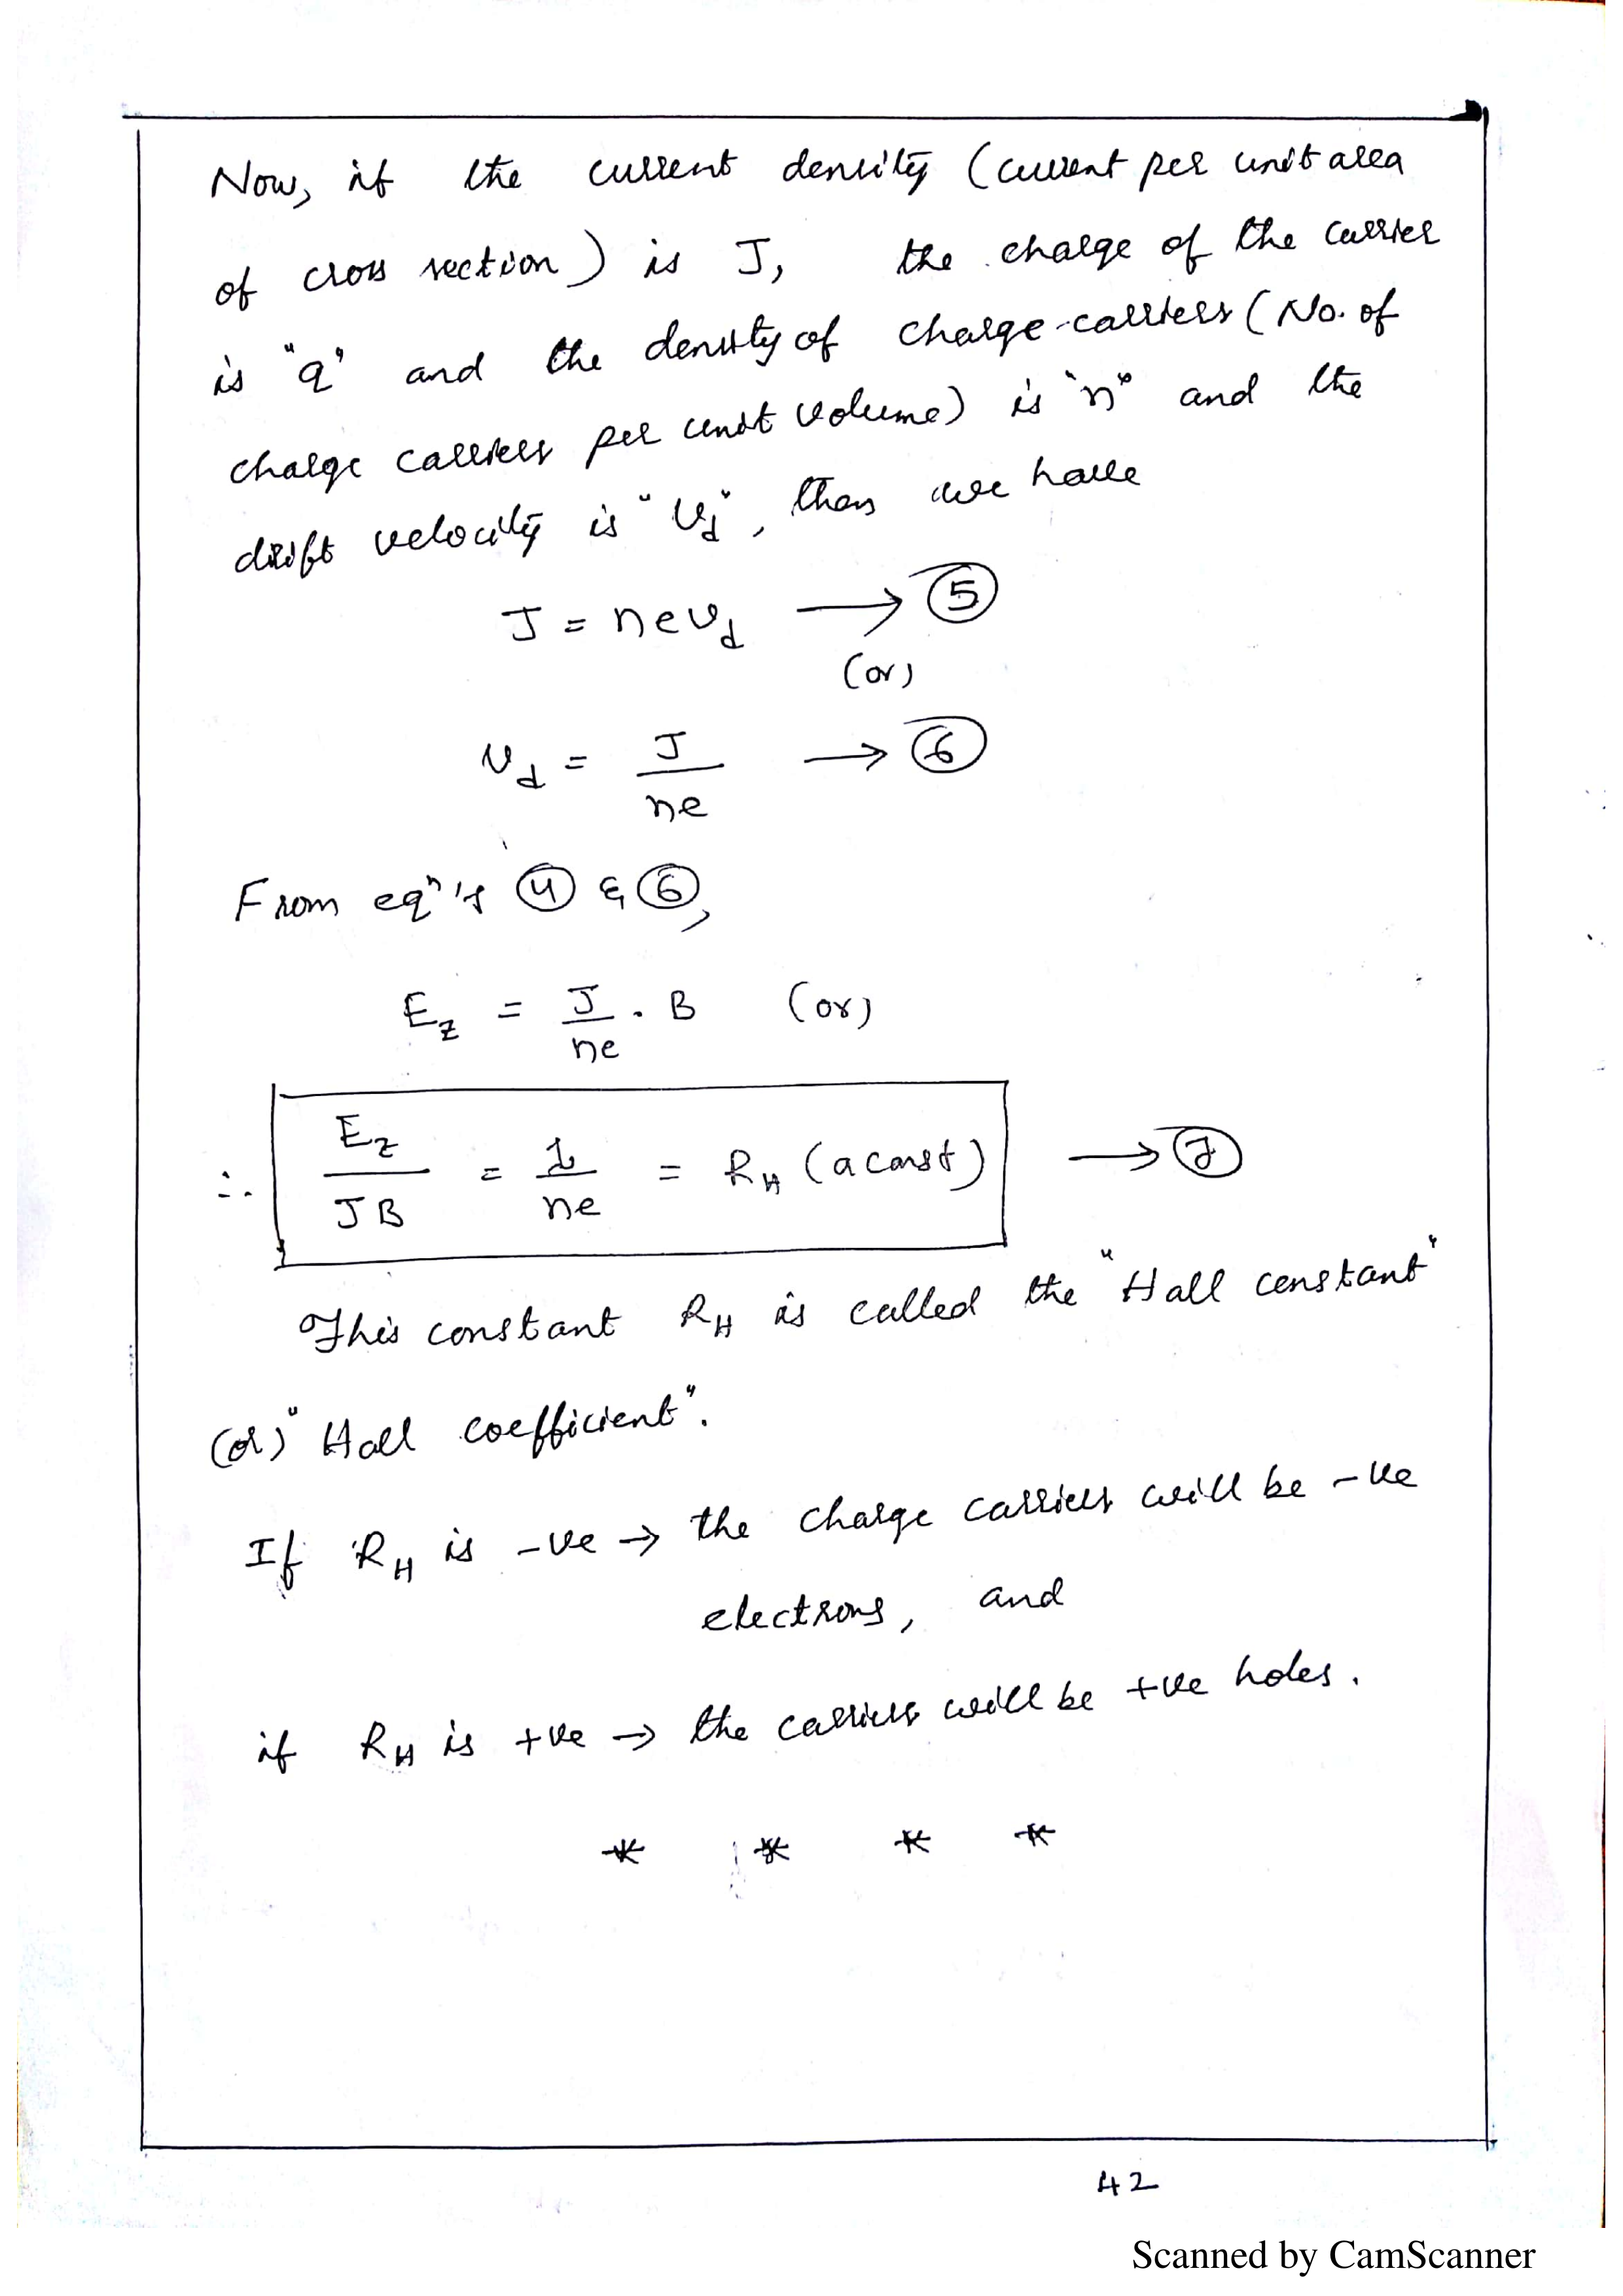 Now, if the current density (current per unit area
of cross section) is J, the charge of the carrier
is "q" and the density of charge-carriers (No. of
charge carriers per unit volume) is "n" and the
drift velocity is "v_d", then we have
J = nev_d → (5)
(or)
v_d = J/ne → (6)
From eqⁿ's (4) & (6),
E_z = J/ne . B (or)
∴ E_z/JB = 1/ne = R_H (a const) → (7)
This constant R_H is called the "Hall constant"
(or) "Hall coefficient".
If R_H is -ve → the charge carriers will be -ve
electrons, and
if R_H is +ve → the carriers will be +ve holes.
* * * *
42
Scanned by CamScanner